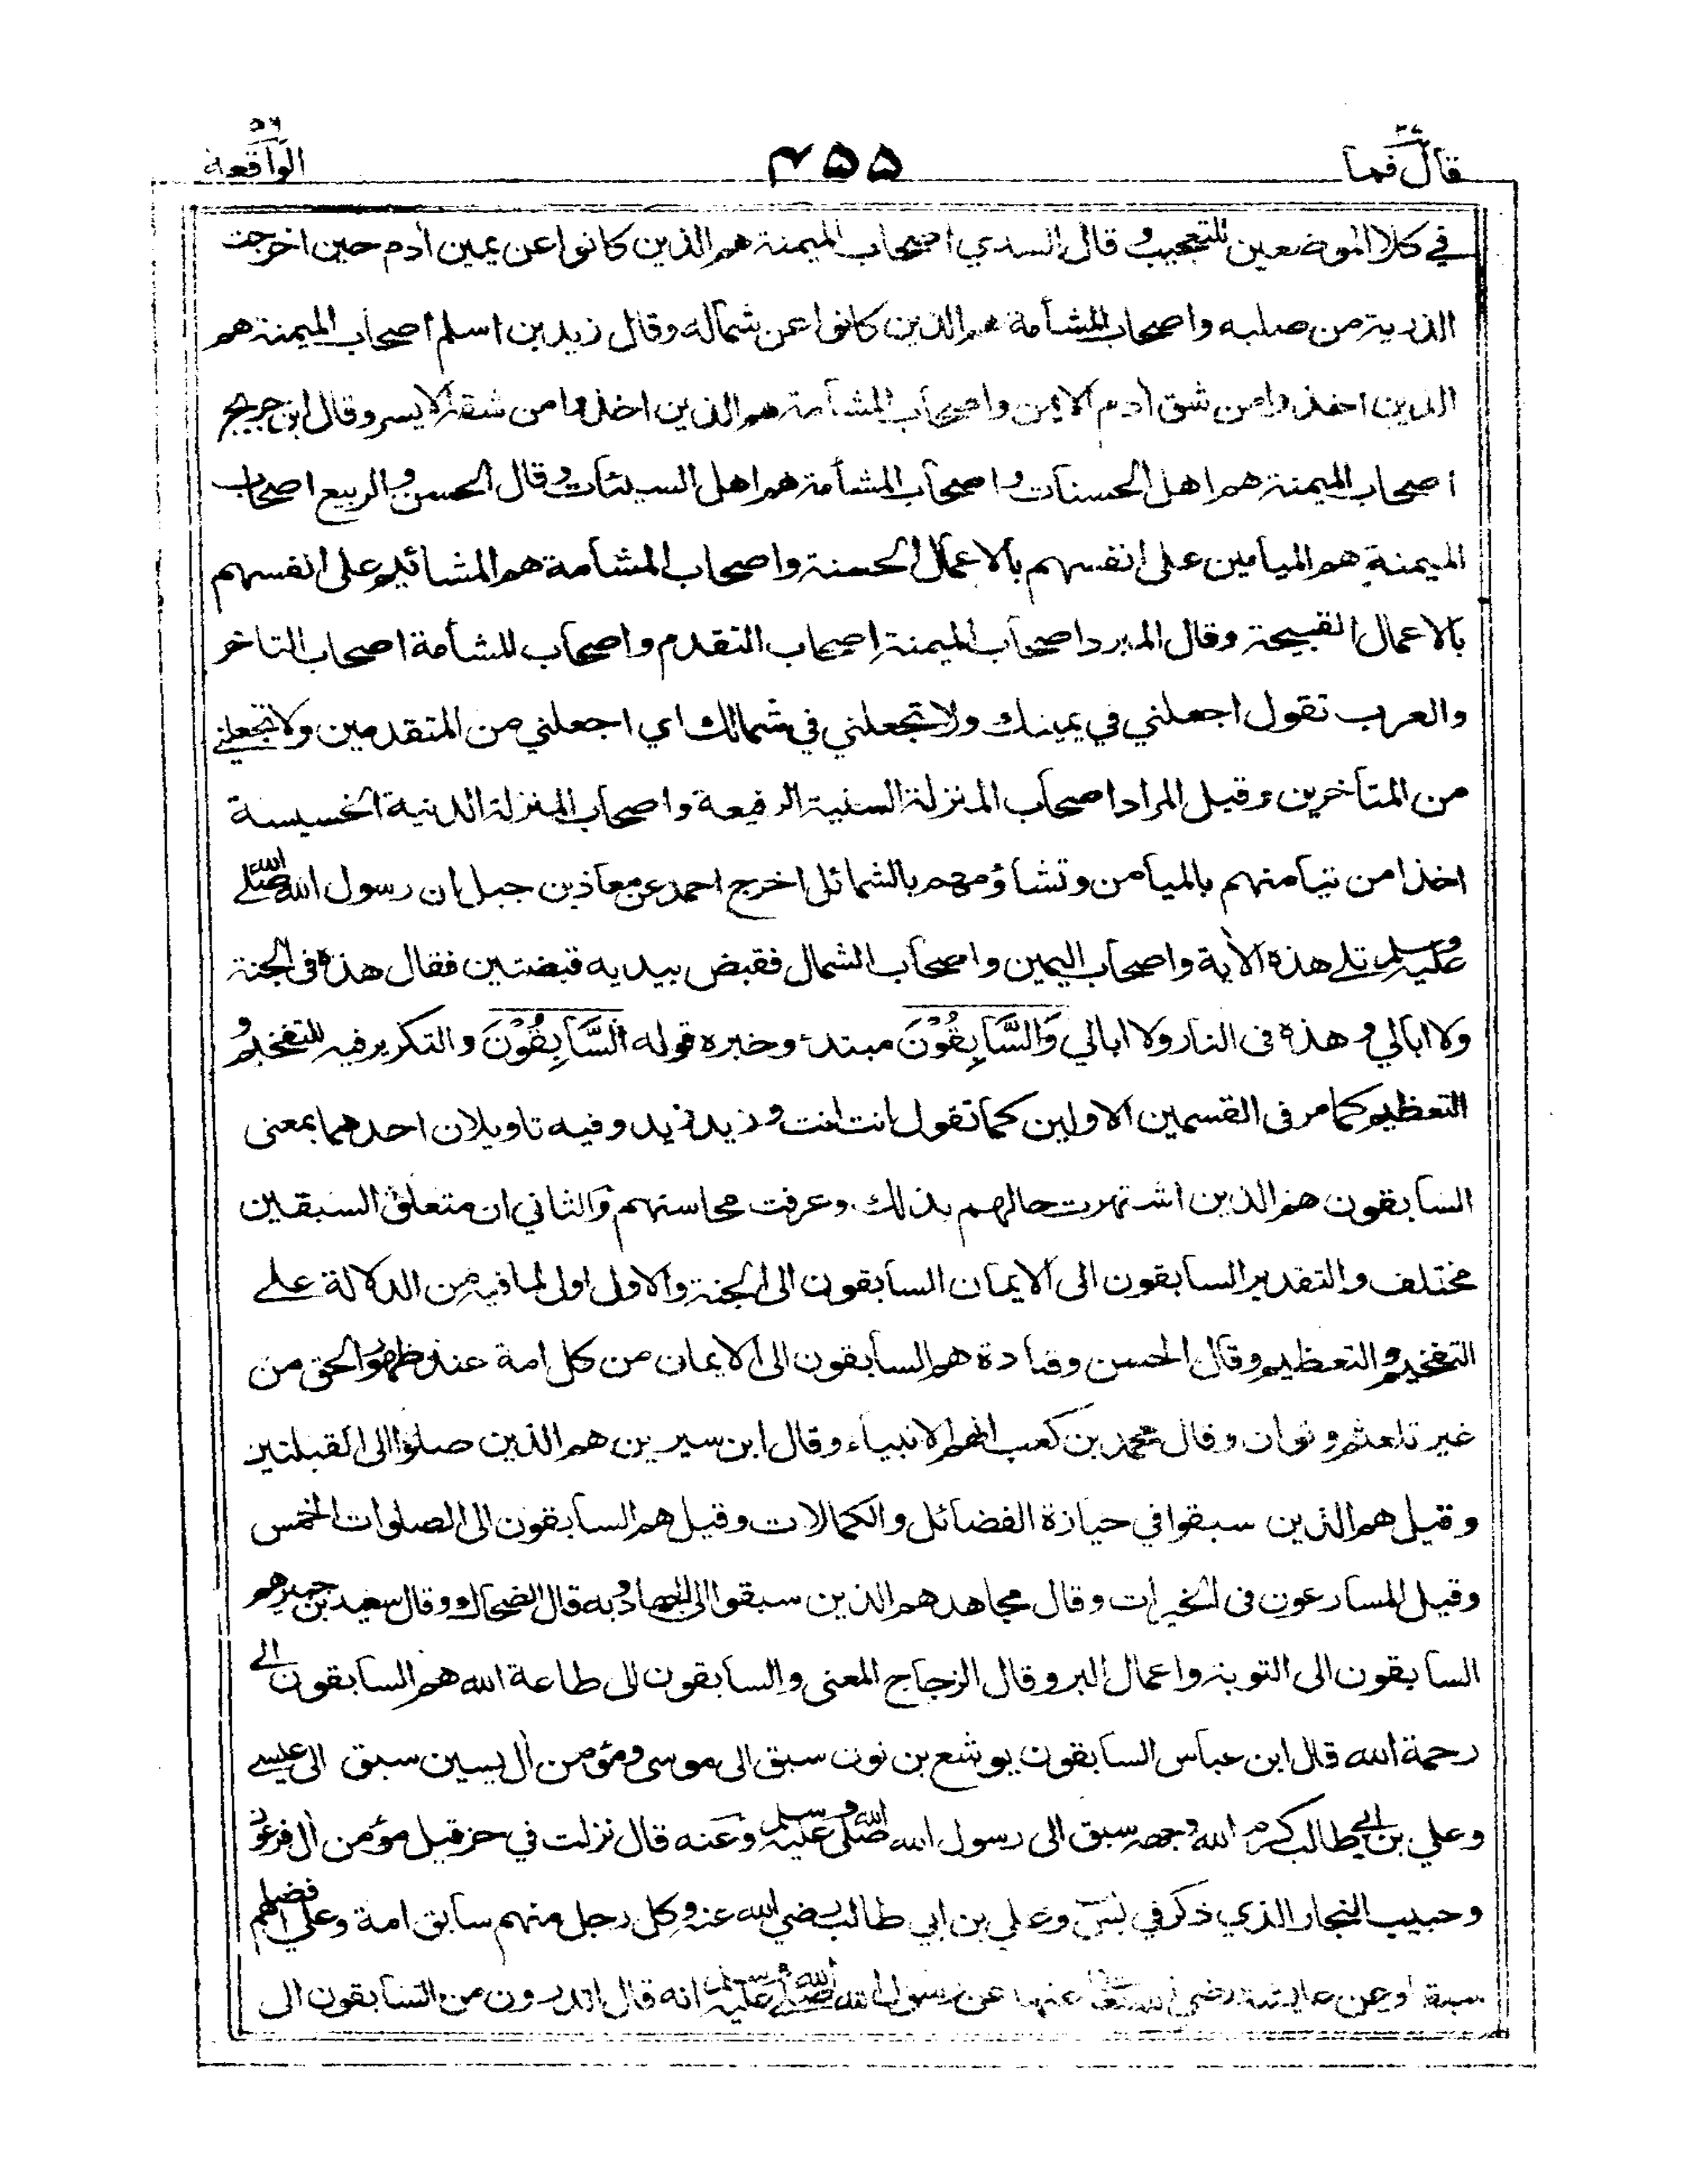 قال فما ٢٧
٤٥٥
الواقعة ٥٦
في كلا الموضعين للتعجيب و قال السدي اصحاب الميمنة هم الذين كانوا عن يمين أدم حين اخرجت
الذرية من صلبه واصحاب المشأمة هم الذين كانوا عن شماله وقال زيد بن اسلم اصحاب الميمنة هم
الذين اخذوا من شق أدم الايمن واصحاب المشأمة هم الذين اخذوا من شقه الايسر وقال ابن جريج
اصحاب الميمنة هم اهل الحسنات و اصحاب المشأمة هم اهل السيئات وقال الحسن والربيع اصحاب
الميمنة هم الميامين على انفسهم بالاعمال الحسنة واصحاب المشأمة هم المشائيم على انفسهم
بالاعمال القبيحة وقال المبرد اصحاب الميمنة اصحاب التقدم واصحاب المشأمة اصحاب التاخر
والعرب تقول اجعلني في يمينك ولا تجعلني في شمالك اي اجعلني من المتقدمين ولا تجعلني
من المتأخرين وقيل المراد اصحاب المنزلة السنية الرفيعة واصحاب المنزلة الدنية الخسيسة
اخذا من تيامنهم بالميامن وتشاؤمهم بالشمائل اخرج احمد عن معاذ بن جبل ان رسول الله صلى الله
عليه وسلم تلى هذه الأية واصحاب اليمين واصحاب الشمال فقبض بيديه قبضتين فقال هذه فى الجنة
ولا ابالي و هذه فى النار ولا ابالي وَالسَّابِقُوْنَ مبتدء وخبره قوله السَّابِقُوْنَ والتكرير فيه للتفخيم و
التعظيم كما مر فى القسمين الاولين كما تقول انت انت و زيد زيد وفيه تاويلان احدهما بمعنى
السابقون هم الذين اشتهرت حالهم بذلك وعرفت محاسنهم والثاني ان متعلق السبقين
مختلف والتقدير السابقون الى الايمان السابقون الى الجنة والاول اولى لما فيه من الدلالة على
التفخيم والتعظيم وقال الحسن وقتادة هم السابقون الى الايمان من كل امة عند ظهور الحق من
غير تلعثم وتوان وقال محمد بن كعب انهم الانبياء وقال ابن سيرين هم الذين صلوا الى القبلتين
وقيل هم الذين سبقوا في حيازة الفضائل والكمالات وقيل هم السابقون الى الصلوات الخمس
وقيل المسارعون فى الخيرات وقال مجاهد هم الذين سبقوا الى الجهاد وبه قال الضحاك وقال سعيد بن جبير هم
السابقون الى التوبة واعمال البر وقال الزجاج المعنى والسابقون الى طاعة الله هم السابقون الى
رحمة الله قال ابن عباس السابقون يوشع بن نون سبق الى موسى ومؤمن أل يسين سبق الى عيسى
وعلي بن ابي طالب كرم الله وجهه سبق الى رسول الله صلى الله عليه وسلم وعنه قال نزلت في حزقيل مؤمن أل فرعون
وحبيب النجار الذي ذكر في يس وعلي بن ابي طالب رضي الله عنه وكل رجل منهم سابق امة وعلي افضلهم
سبقا وعن عايشة رضي الله تعالى عنها عن رسول الله صلى الله عليه وسلم انه قال اتدرون من السابقون الى